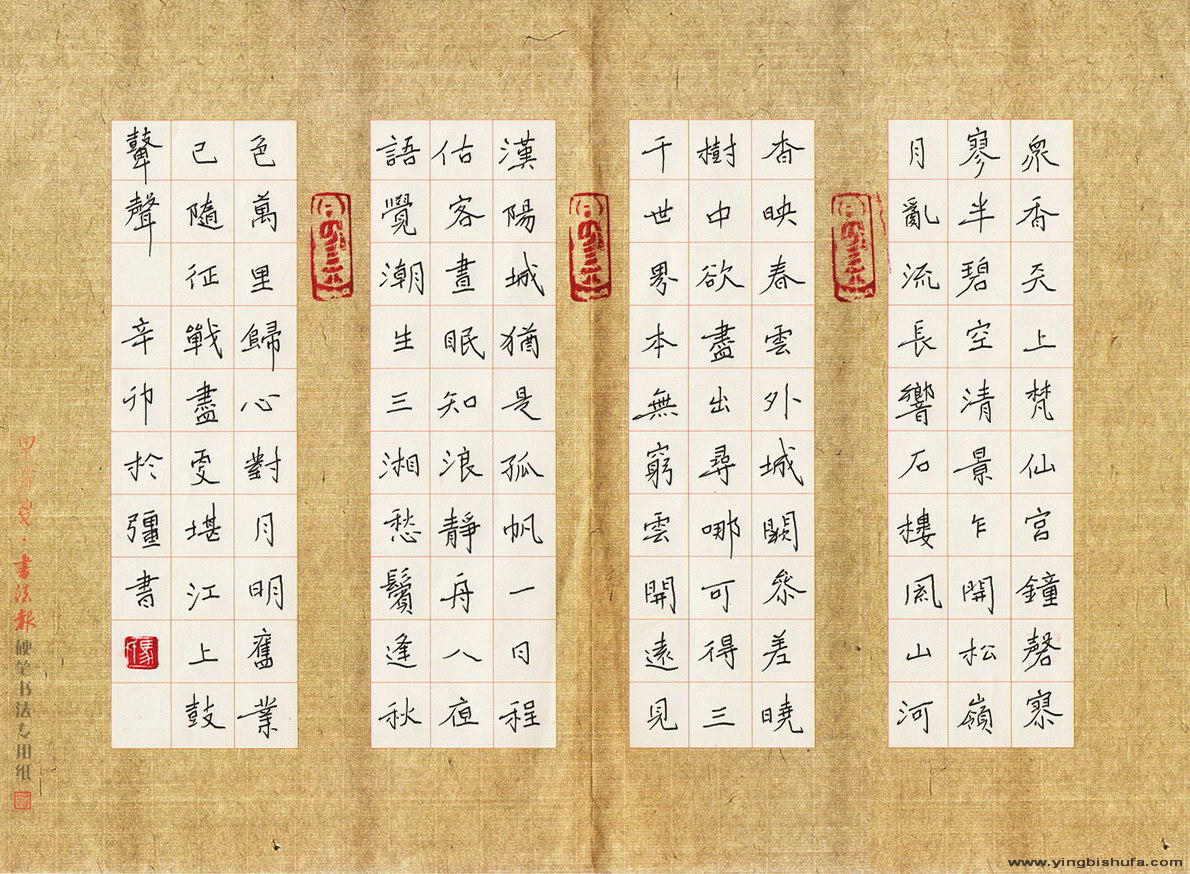 衆香天上梵仙宮鐘磬寥
寥半碧空清景乍開松嶺
月亂流長響石樓風山河
杳映春雲外城闕參差曉
樹中欲盡出尋哪可得三
千世界本無窮雲開遠見
漢陽城猶是孤帆一日程
估客晝眠知浪靜舟人夜
語覺潮生三湘愁鬢逢秋
色萬里歸心對月明舊業
已隨征戰盡更堪江上鼓
鼙聲 辛卯於疆書
書法報 硬笔书法专用纸
www.yingbishufa.com